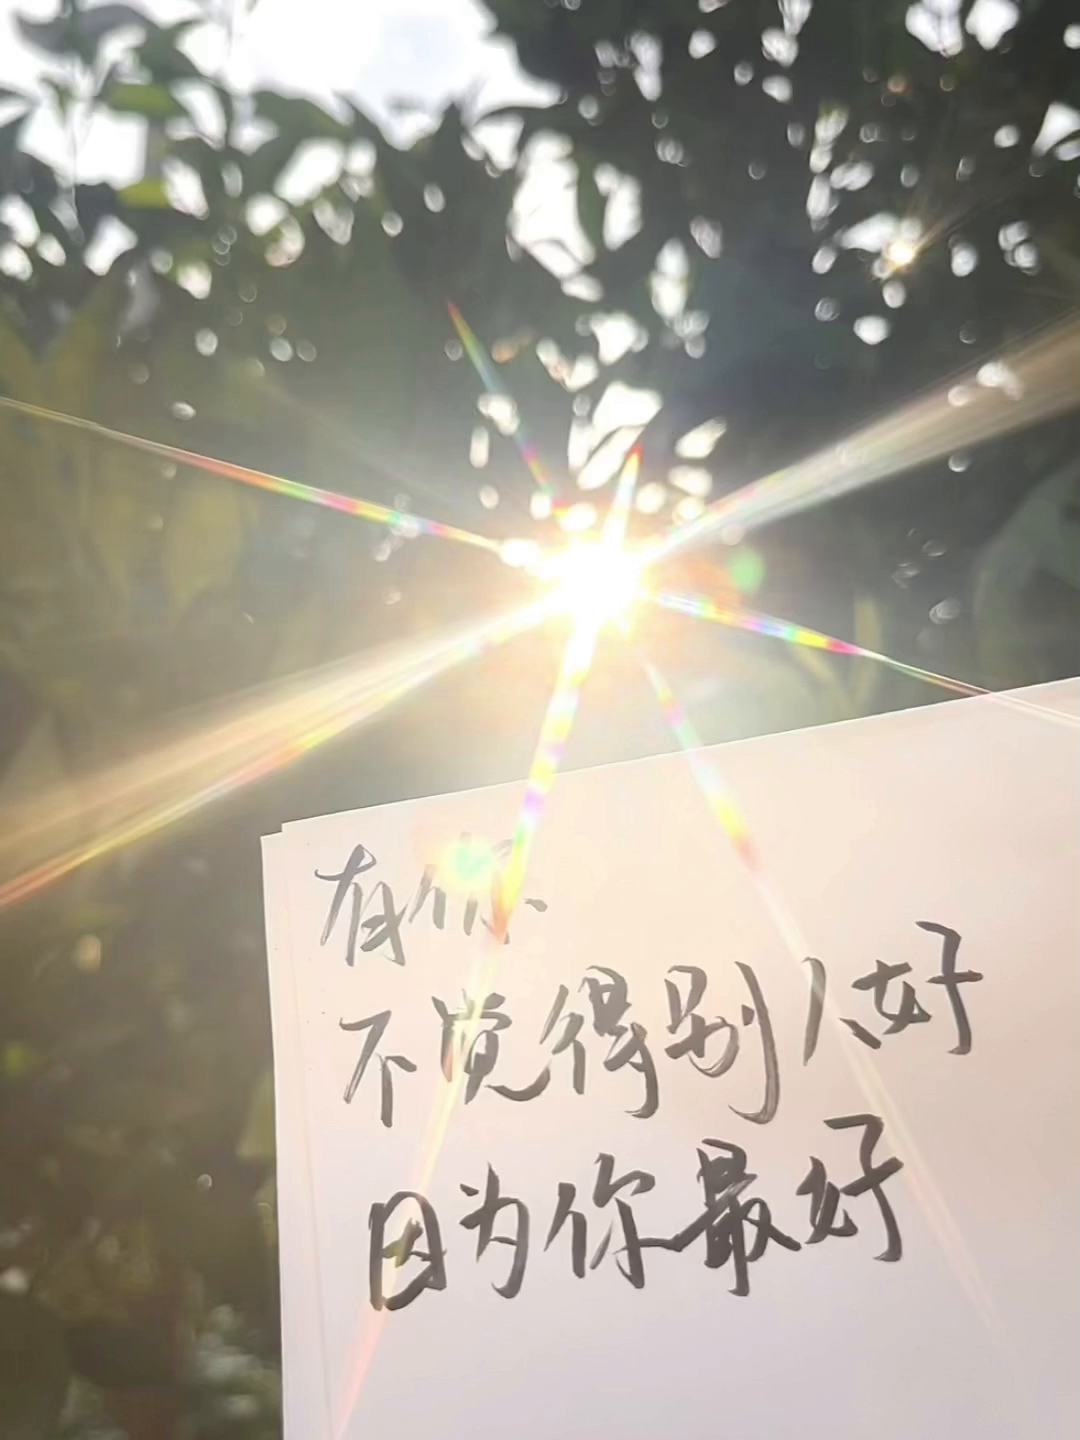 有你
不觉得别人好
因为你最好